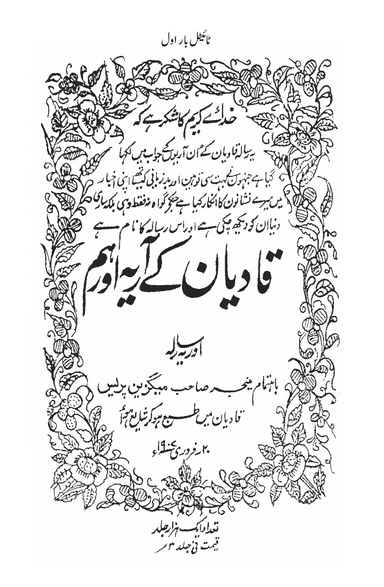 ٹائیٹل بار اول
خدائے کریم کا شکر ہے کہ
یہ رسالہ قادیان کے اُن آریوں کے جواب میں لکھا
گیا ہے جنہوں نے بہت سی توہین اور بدزبانی کے ساتھ اپنی اخبار
میں میرے نشانوں کا انکار کیا ہے جنکے گواہ نہ فقط وہی بلکہ ساری
دنیا ان کو دیکھ چکی ہے اور اس رسالہ کا نام ہے
قادیان کے آریہ اور ہم
اور یہ رسالہ
باہتمام منیجر صاحب میگزین پریس
قادیان میں طبع ہو کر شایع ہوا
۲۰ فروری ۱۹۰۷ء
تعداد ایک ہزار جلد
قیمت فی جلد ۳؍